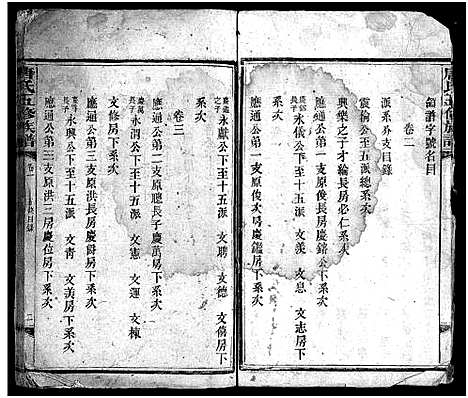 領譜字號名目
卷二
派系分支目錄
震倫公至五派總系次
興樂之子才綸長房必仁系次
應通公第一支原俊長房慶鎔公下系次
永儀公下至十五派 文羨 文息 文志房下
應通公第一支原俊次房慶鑑房下系次
永獻公下至十五派 文聘 文德 文傍房下
系次
卷三
應通公第二支原聰長子慶萬房下系次
慶萬長子 永潤公下至十五派 文憲 文運 文棟
應通公第三支原洪長房慶爵房下系次
文修房下系次
長子 永興公下至十五派 文青 文美房下系次
應通公第三支原洪三房慶位房下系次
唐氏五修族譜
唐氏五修族譜